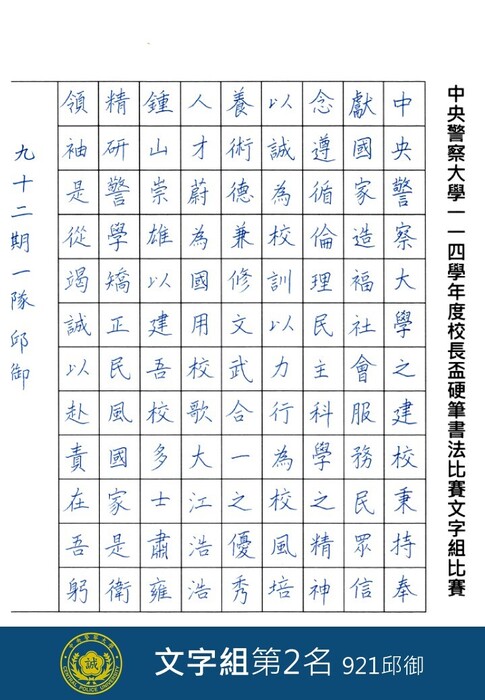 中央警察大學一一四學年度校長盃硬筆書法比賽文字組比賽
中央警察大學之建校秉持奉
獻國家造福社會服務民眾信
念遵循倫理民主科學之精神
以誠為校訓以力行為校風培
養術德兼修文武合一之優秀
人才蔚為國用校歌大江浩浩
鍾山崇雄以建吾校多士肅雍
精研警學矯正民風國家是衛
領袖是從竭誠以赴責在吾躬
九十二期一隊邱御
中央警察大學
誠
CENTRAL POLICE UNIVERSITY
文字組第2名 921邱御